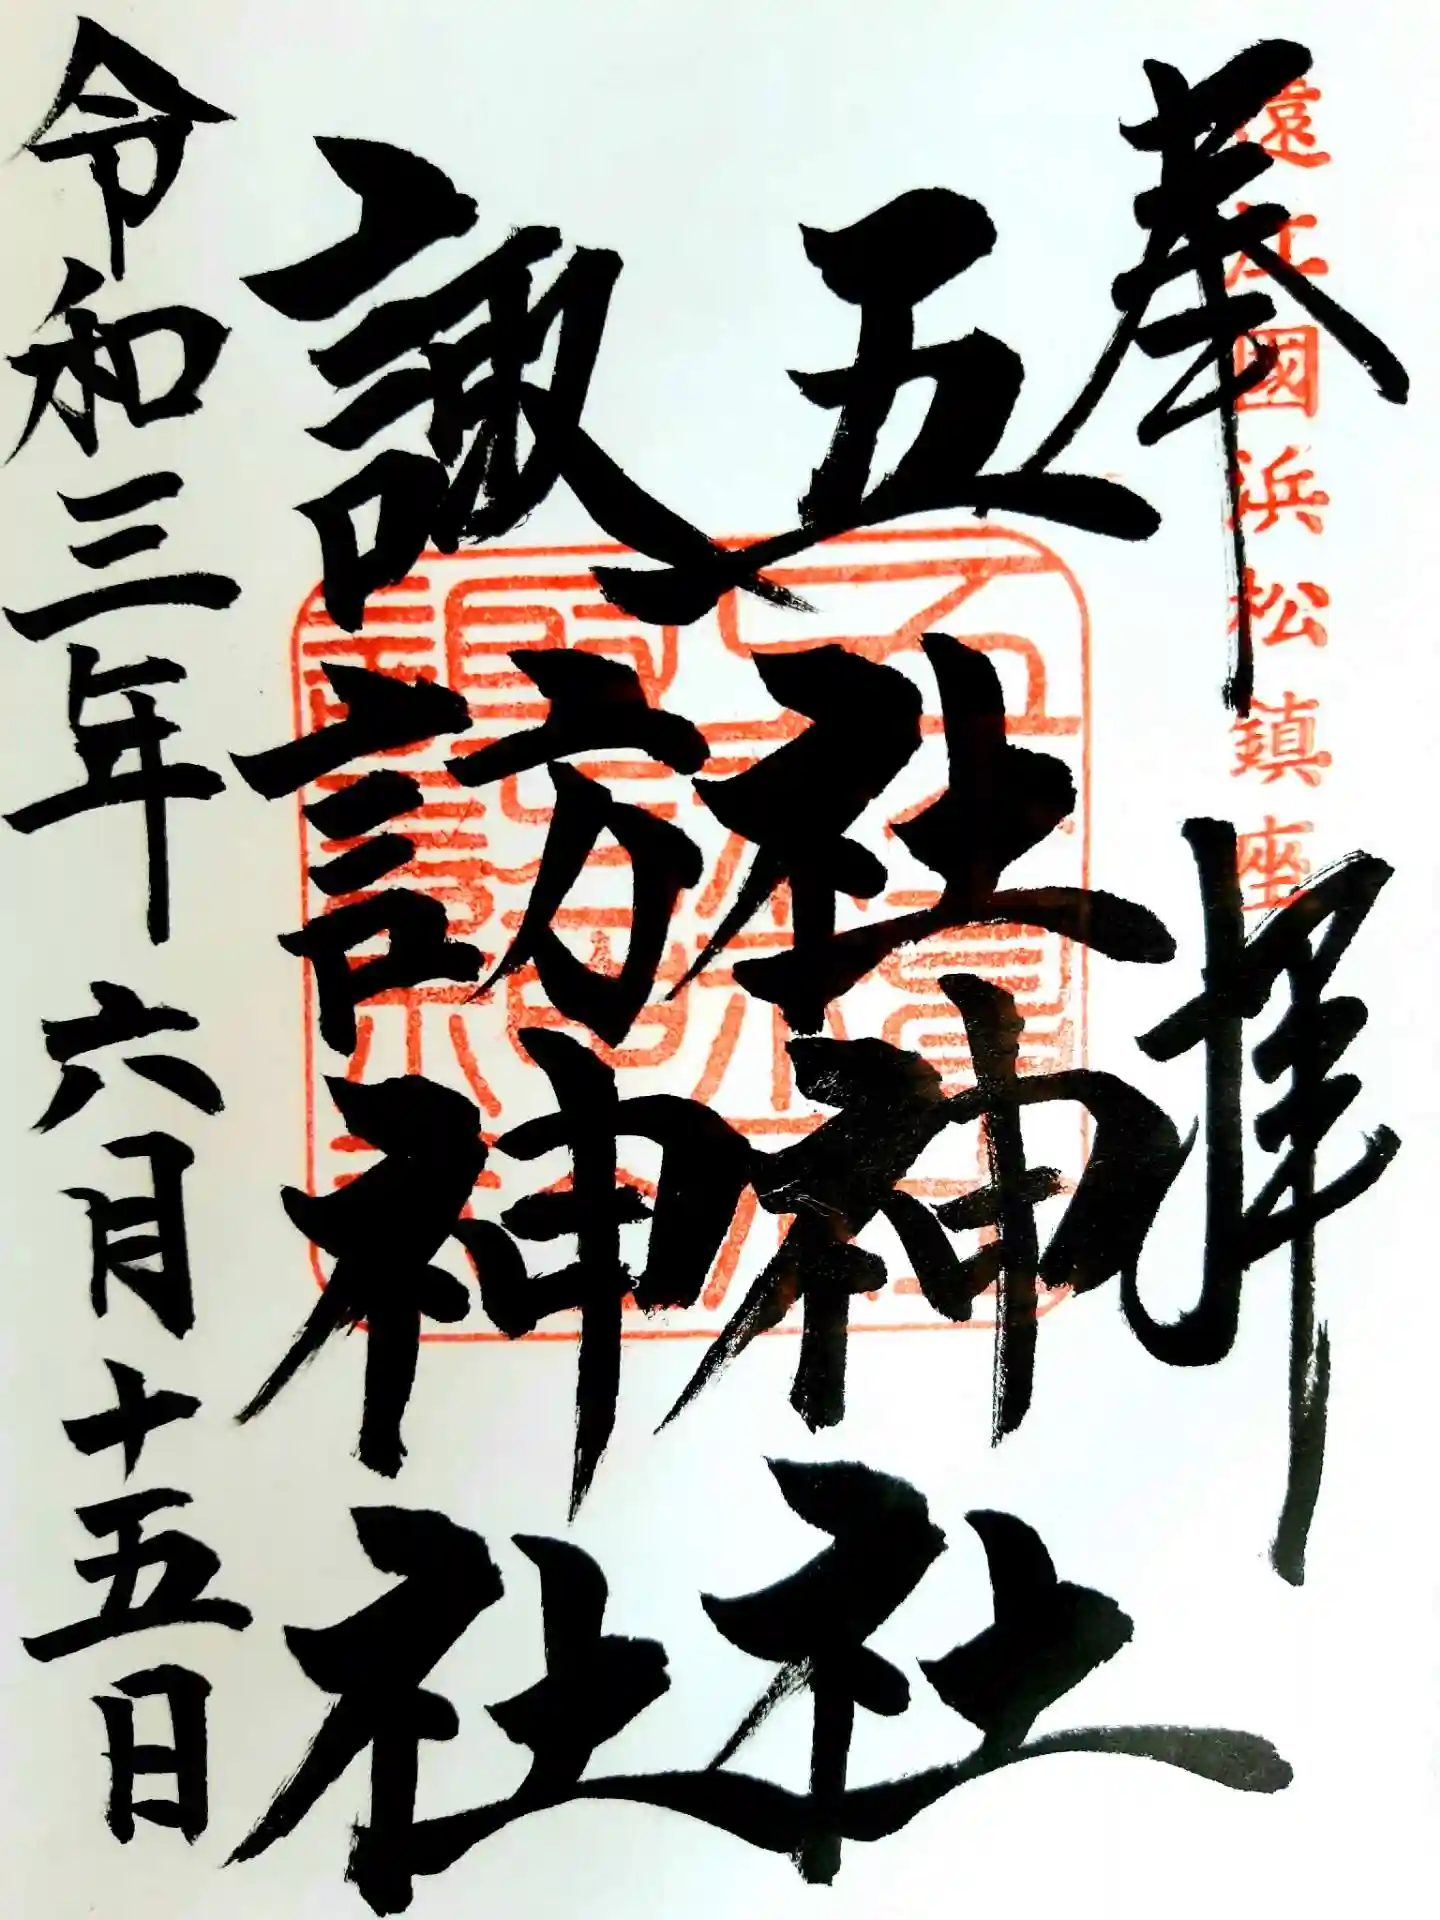 奉拝
遠江國浜松鎮座
五社神社
諏訪神社
令和三年六月十五日